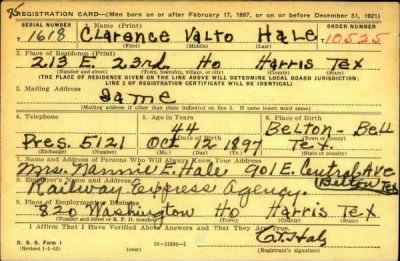 REGISTRATION CARD—(Men born on or after February 17, 1897, or on or before December 31, 1921)
SERIAL NUMBER 1. Name (Print) ORDER NUMBER
1618 Clarence Valto Hale 10525
(First) (Middle) (Last)
2. Place of Residence (Print)
213 E. 23rd. Ho Harris Tex
(Number and street) (Town, township, village, or city) (County) (State)
(THE PLACE OF RESIDENCE GIVEN ON THE LINE ABOVE WILL DETERMINE LOCAL BOARD JURISDICTION;
LINE 2 OF REGISTRATION CERTIFICATE WILL BE IDENTICAL)
3. Mailing Address
Same
(Mailing address if other than place indicated on line 2. If same insert word same)
4. Telephone 5. Age in Years 6. Place of Birth
44 Belton - Bell
Date of Birth (Town or county)
Pres. 5121 Oct 12 1897 Tex.
(State or country)
7. Name and Address of Person Who Will Always Know Your Address
Mrs. Nannie E. Hale 901 E. Central Ave
Belton Tex
8. Employer's Name and Address
Railway Express Agency.
9. Place of Employment or Business
820 Washington Ho Harris Tex
(Number and street or R. F. D. number) (Town) (County) (State)
I Affirm That I Have Verified Above Answers and That They Are True.
D. S. S. Form 1
(Revised 1-1-42)
C.V. Hale
(Registrant's signature)